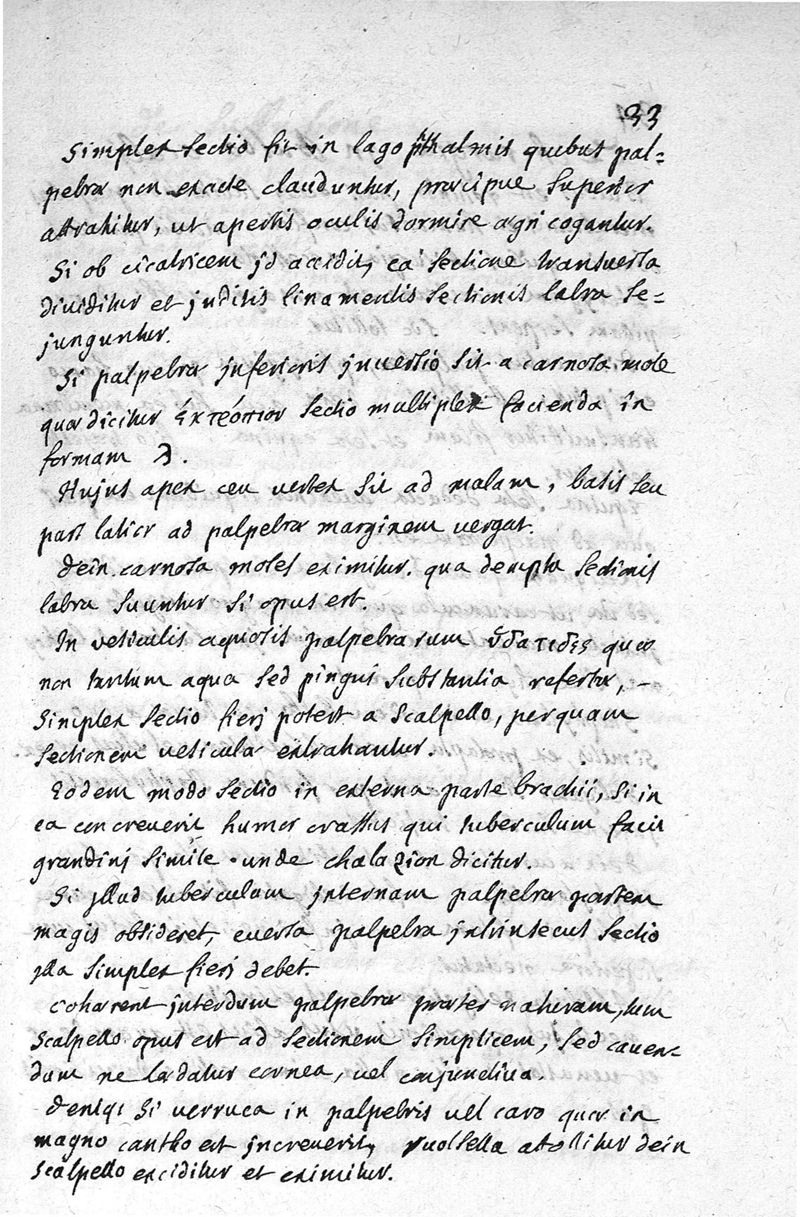 33
Simplex sectio fit in lagophthalmis quibus pal=
pebræ non exacte clauduntur, præcipue superior
attrahitur, ut apertis oculis dormire ægri cogantur.
Si ob cicatricem jd accidit, ea sectione transversa
dividitur et juditis linamentis sectionis labra se=
junguntur.
Si palpebræ jnferioris jnversio sit a carnosa mole
quæ dicitur ἐκτρόπιον sectio multiplex facienda in
formam λ.
Hujus apex ceu vertex sit ad malam, basis seu
pars latior ad palpebræ marginem vergat.
dein carnosa moles eximitur. qua dempta sectionis
labra suuntur si opus est.
In vesiculis aquosis palpebrarum ὑδατιδες quæ
non tantum aqua sed pingui substantia refertæ, –
simplex sectio fierj potest a scalpello, per quam
sectionem vesicula extrahantur.
Eodem modo sectio in externa parte brachii, si in
ea concreverit humor crassus qui tuberculum facit
grandinj simile. unde chalazion dicitur.
Si jllud tuberculum jnternam palpebræ partem
magis obsideret, eversa palpebra jntrinsecus sectio
jlla simplex fierj debet.
cohærent jnterdum palpebræ præter naturam, tum
scalpello opus est ad sectionem simplicem, sed caven=
dum ne lædatur cornea, vel conjunctiva.
deniq; si verruca in palpebris vel caro quæ in
magno cantho est jncreverit, vuolsella attollitur dein
scalpello exciditur et eximitur.